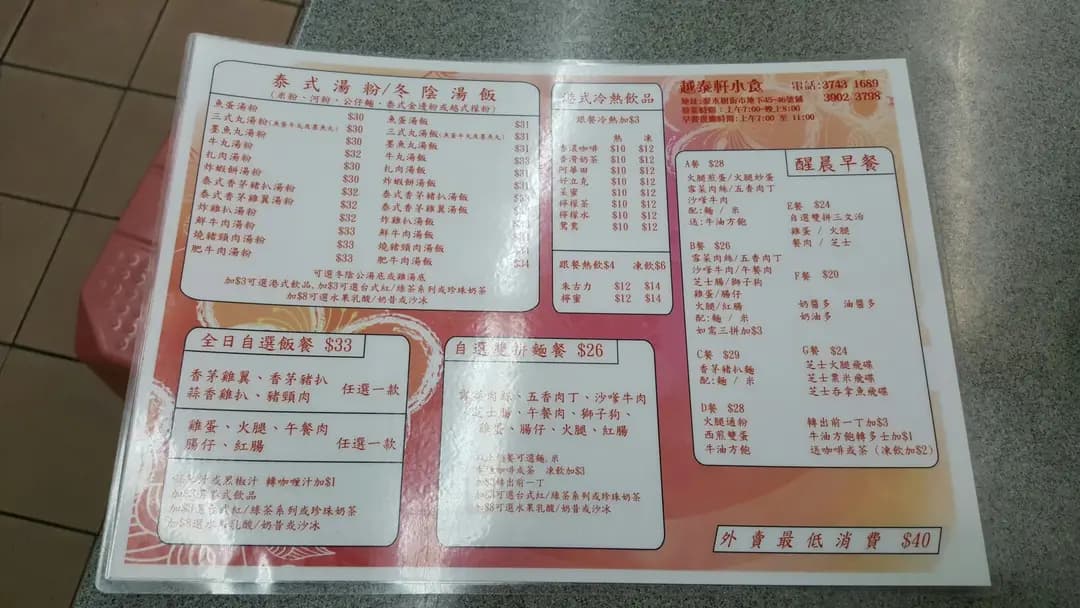 泰式湯粉/冬陰湯飯
(米粉、河粉、公仔麵、泰式金邊粉或越式檬粉)
魚蛋湯粉 $30
三式丸湯粉(魚蛋牛丸及墨魚丸) $31
墨魚丸湯粉 $30
牛丸湯粉 $30
扎肉湯粉 $32
炸蝦餅湯粉 $30
泰式香茅豬扒湯粉 $32
泰式香茅雞翼湯粉 $32
炸雞扒湯粉 $32
鮮牛肉湯粉 $33
燒豬頸肉湯粉 $33
肥牛肉湯粉 $33
魚蛋湯飯 $31
三式丸湯飯(魚蛋牛丸及墨魚丸)
墨魚丸湯飯 $31
牛丸湯飯
扎肉湯飯
炸蝦餅湯飯
泰式香茅豬扒湯飯
泰式香茅雞翼湯飯
炸雞扒湯飯
鮮牛肉湯飯
燒豬頸肉湯飯
肥牛肉湯飯 $34
可選冬陰公湯底或雞湯底
加$3可選港式飲品,加$3可選台式紅/綠茶系列或珍珠奶茶
加$8可選水果乳酸/奶昔或沙冰
港式冷熱飲品
跟餐冷熱加$3
熱 凍
香濃咖啡 $10 $12
香滑奶茶 $10 $12
阿華田 $10 $12
好立克 $10 $12
菜蜜 $10 $12
檸檬茶 $10 $12
檸檬水 $10 $12
鴛鴦 $10 $12
跟餐熱飲$4 凍飲$6
朱古力 $12 $14
檸蜜 $12 $14
越泰軒小食 電話:3743 1689
3902 3798
街市地下45-46號鋪
營業時間:上午7:00-晚上8:00
時間:上午7:00 至 11:00
醒晨早餐
A餐 $28
火腿煎蛋/火腿炒蛋
雪菜肉絲/五香肉丁
沙嗲牛肉
配:麵 / 米
送:牛油方飽
B餐 $26
雪菜肉絲/五香肉丁
沙嗲牛肉/午餐肉
芝士腸/獅子狗
雞蛋/腸仔
火腿/紅腸
配:麵 / 米
如需三拼加$3
C餐 $29
香茅豬扒麵
配:麵 / 米
D餐 $28
火腿通粉
西煎雙蛋
牛油方飽
E餐 $24
自選雙拼三文治
雞蛋 / 火腿
餐肉 / 芝士
F餐 $20
奶醬多 油醬多
奶油多
G餐 $24
芝士火腿飛碟
芝士粟米飛碟
芝士吞拿魚飛碟
轉出前一丁加$3
牛油方飽轉多士加$1
送咖啡或茶 (凍飲加$2)
全日自選飯餐 $33
香茅雞翼、香茅豬扒 任選一款
蒜香雞扒、豬頸肉
雞蛋、火腿、午餐肉
腸仔、紅腸 任選一款
汁或黑椒汁 轉咖喱汁加$1
加$3選港式飲品
加$3選台式紅/綠茶系列或珍珠奶茶
加$8選水果乳酸/奶昔或沙冰
自選雙拼麵餐 $26
雪菜肉絲、五香肉丁、沙嗲牛肉
芝士腸、午餐肉、獅子狗、
雞蛋、腸仔、火腿、紅腸
以上麵餐可選麵.米
咖啡或茶 凍飲加$3
加$3轉出前一丁
加$3可選台式紅/綠茶系列或珍珠奶茶
加$8可選水果乳酸/奶昔或沙冰
外賣最低消費 $40